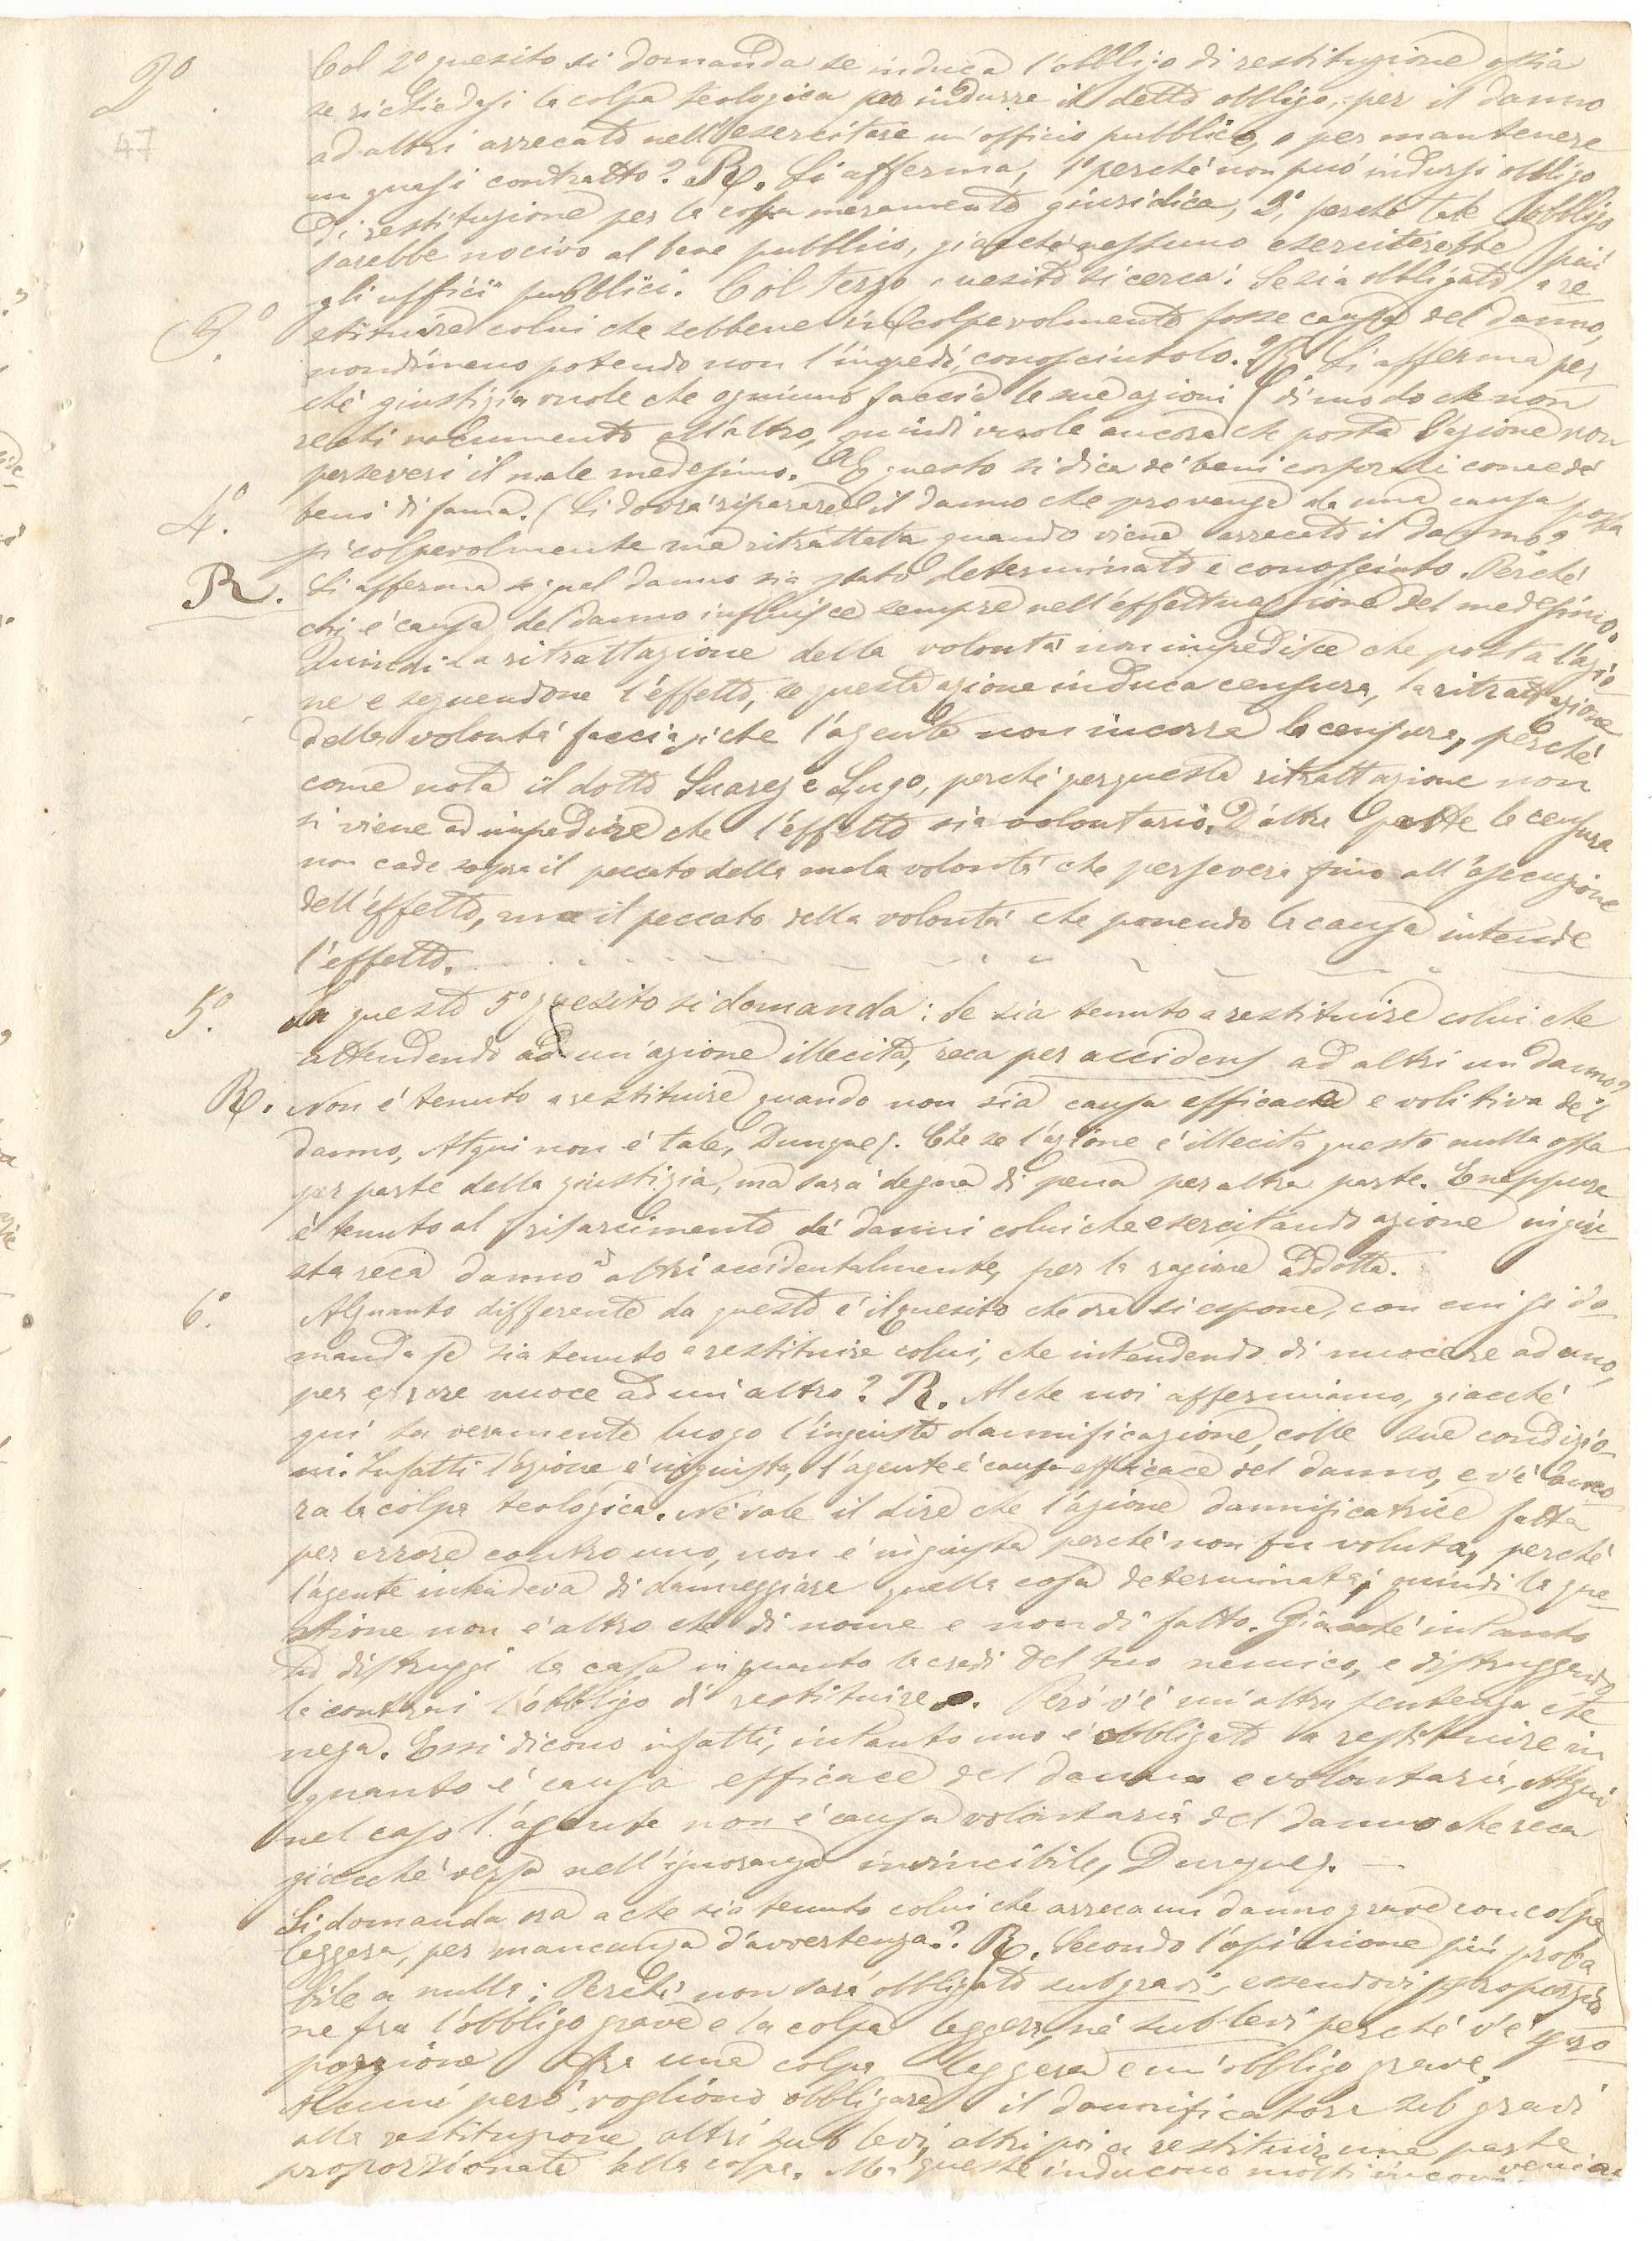 2º Col 2º quesito si domanda se induca l'obbligo di restituzione ossia
47
se richiedasi la colpa teologica per indurre il detto obbligo, per il danno
ad altri arrecato nell'esercitare un'officio pubblico, o per mantenere
un quasi contratto? R. Si afferma, 1º perché non può indursi obbligo
di restituzione per la colpa meramente giuridica, 2º, perché tale obbligo
sarebbe nocivo al bene pubblico, giacché nessuno eserciterebbe più
gli ufficii pubblici. Col terzo quesito si cerca: Se sia obbligato a re-
3º. stituire colui che sebbene incolpevolmente fosse causa del danno,
nondimeno potendo non l'impedì, conosciutolo. R. Si afferma per
ché giustizia vuole che ognuno faccia le sue azioni di modo che non
rechi nocumento all'altro, quindi vuole ancora che posta l'azione non
perseveri il male medesimo. E questo si dica de' beni corporali come de'
4º. beni di fama. Si dovrà riparare il danno che provenga da una causa posta
sì colpevolmente ma ritrattata quando viene arrecato il danno?
R. Si afferma se quel danno sia stato determinato e conosciuto. Perché
chi è causa del danno influisce sempre nell'effettuazione del medesimo.
Quindi la ritrattazione della volontà non impedisce che posta l'azio-
ne e seguendone l'effetto, se questa azione induca censura, la ritrattazione
della volontà facciasi che l'agente non incorra la censura, perché
come nota il dotto Suarez e Lugo, perché per questa ritrattazione non
si viene ad impedire che l'effetto sia volontario. D'altra parte la censura
non cade sopra il peccato della mala volontà che persevera fino all'esecuzione
dell'effetto, ma il peccato della volontà che ponendo la causa intende
l'effetto.
5º. In questo 5º quesito si domanda: Se sia tenuto a restituire colui che
attendendo ad un'azione illecita, reca per accidens ad altri un danno?
R. Non è tenuto a restituire quando non sia causa efficace e volitiva del
danno, Atqui non è tale, Dunque. Che se l'azione è illecita questo nulla osta
per parte della giustizia, ma sarà degna di pena per altra parte. E neppure
è tenuto al risarcimento de' danni colui che esercitando azione ingiu-
sta reca danno a altri accidentalmente, per la ragione addotta.
6º. Alquanto differente da questo è il quesito che ora si espone, con cui si do-
manda se sia tenuto a restituire colui, che intendendo di nuocere ad uno,
per errore nuoce ad un'altro? R. Al che noi affermiamo, giacché
qui ha veramente luogo l'ingiusta damnificazione, colle sue condizio-
ni. Infatti l'azione è ingiusta, l'agente è causa efficace del danno, e v'è anco-
ra la colpa teologica. Né vale il dire che l'azione damnificatrice fatta
per errore contro uno, non è ingiusta perché non fu voluta, perché
l'agente intendeva di danneggiare quella cosa determinata; quindi la que-
stione non è altro che di nome e non di fatto. Giacché intanto
tu distruggi la casa in quanto la credi del tuo nemico, e distruggendo
la contrai l'obbligo di restituire. Però v'è un'altra sentenza che
nega. Essi dicono infatti, intanto uno è obbligato a restituire in
quanto è causa efficace del danno e volontaria, Atqui
nel caso l'agente non è causa volontaria del danno che reca
giacché versa nell'ignoranza invincibile, Dunque.
Si domanda ora a che sia tenuto colui che arreca un danno grave con colpa
leggera, per mancanza d'avvertenza? R. Secondo l'opinione più proba
bile a nulla: Perché non sarà obbligato sub gravi, essendovi sproporzio
ne fra l'obbligo grave e la colpa leggera, né sub levi perché v'è spro
porzione fra una colpa leggera e un'obbligo grave.
Alcuni però vogliono obbligare il damnificatore sub gravi
alla restituzione, altri sub levi, altri poi a restituire una parte
proporzionata alla colpa. Ma queste inducono molti